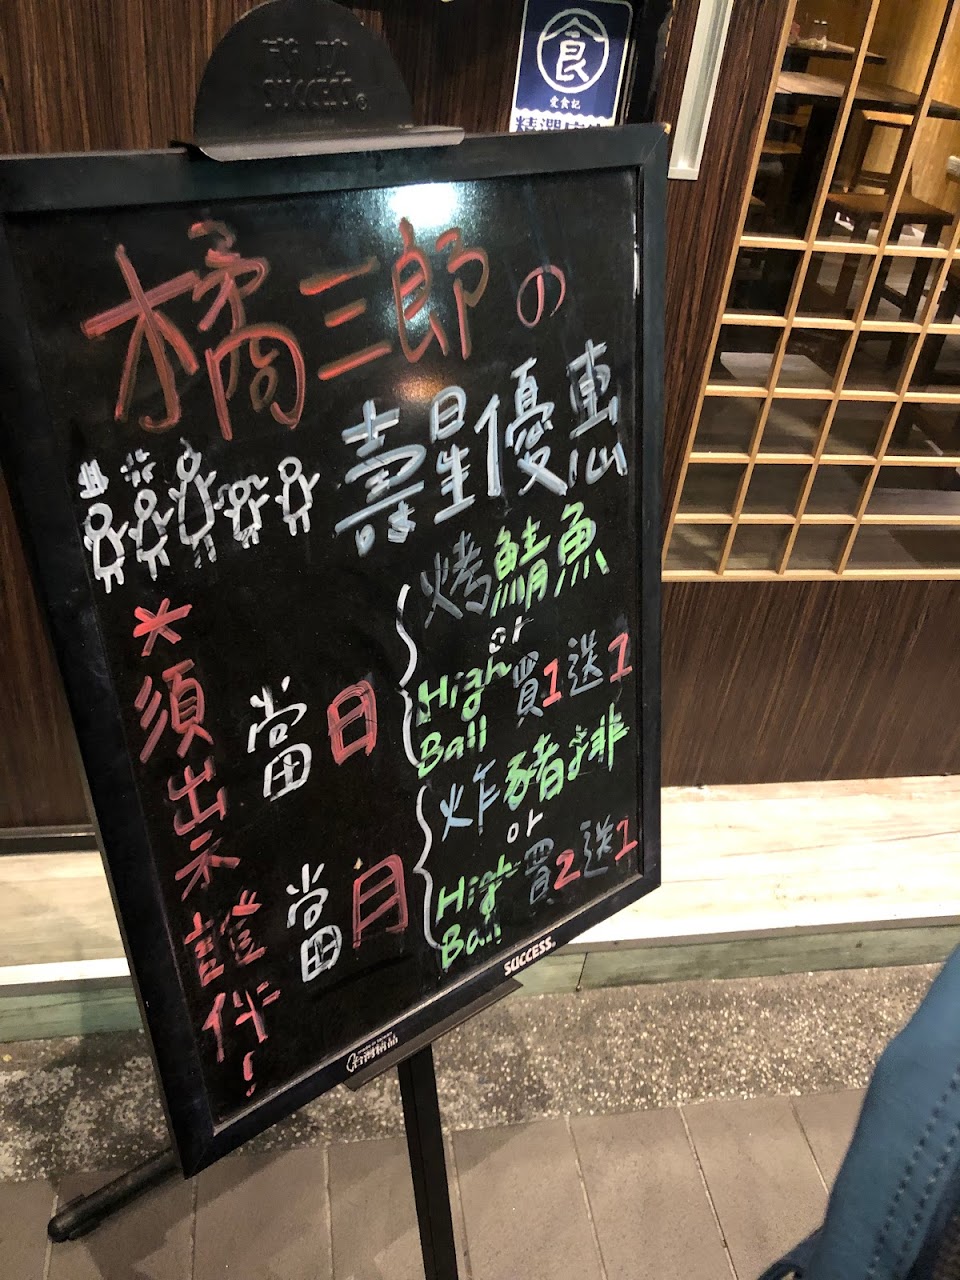 SUCCESS®
食
愛食記
橘三郎の
壽星優惠
*須出示證件!
當日
烤鯖魚
or
High Ball
買1送1
當月
炸豬排
or
High Ball
買2送1
SUCCESS®